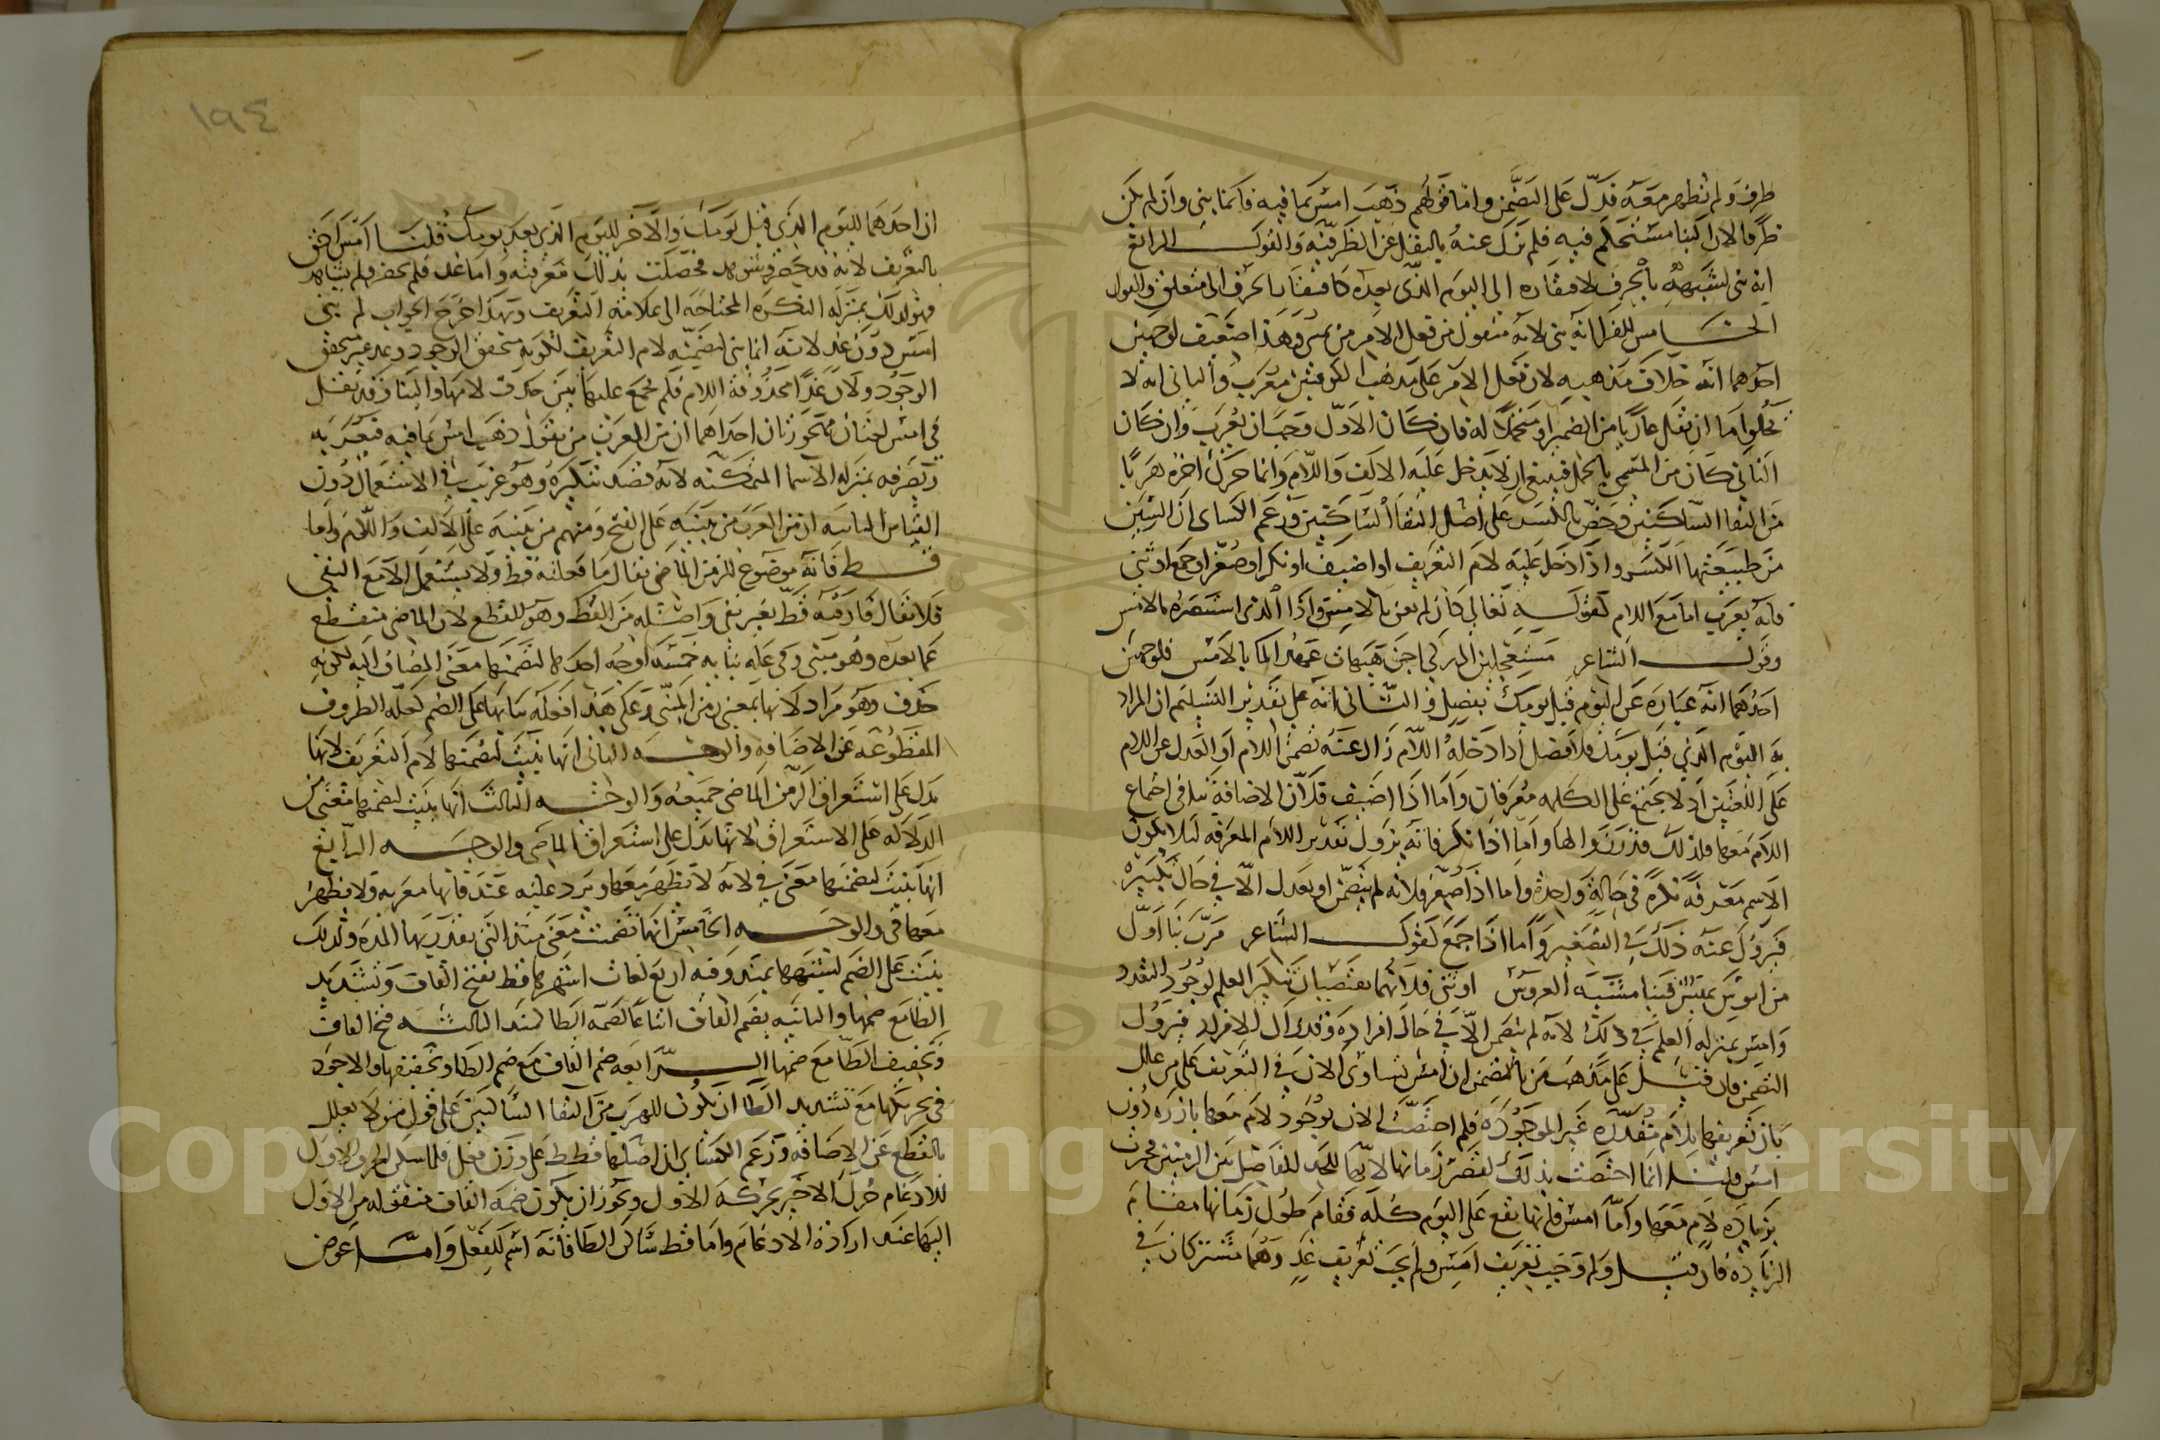 ظرف ولم تظهر معه فدل على التضمن واما قولهم ذهب امس بما فيه فانما بني وان لم يكن
ظرفا لان البنا مستحكم فيه فلم يزل عنه بالنقل عن الظرفية والقول الرابع
انه بني لشبهه بالحرف لافتقاره الى اليوم الذي بعده كافتقار الحرف الى متعلق والقول
الخامس للفرا انه بني لانه منقول من فعل الامر من يمسي وهذا ضعيف لوجهين
احدهما انه خلاف مذهبه لان فعل الامر على مذهب الكوفيين معرب والثاني انه لا
يخلوا ما ان نقل عاريا من الضمير او متحملا له فان كان الاول وجب ان يعرب وان كان
الثاني كان من المسمى بالجمل فينبغي ان لا يدخل عليه الالف واللام وانما حرك اخره هربا
من التقا الساكنين وخص بالكسر على اصل التقا الساكنين وزعم الكساي ان السين
من طبيعتها الكسر واذا دخل عليه لام التعريف او اضيف او نكر او صغر او جمع او ثني
فانه يعرب اما مع اللام كقوله تعالى كان لم تغن بالامس فاذا الذي استنصره بالامس
وقول الشاعر الحي هيهات عهد بالامس فلوجهين
احدهما انه عبارة عن اليوم قبل يومك بفصل والثاني انه على تقدير التسليم ان المراد
به اليوم الذي قبل يومك فلا فصل اذا دخله اللام زال عنه تضمن اللام او العدل عن اللام
على اللفظين اذ لا يجتمع على الكلمة معرفان واما اذا اضيف فلان الاضافة تنافي اجماع
اللام معها فلذلك قدر زوالها واما اذا نكر فانه يزول تقدير اللام المعرفة لئلا يكون
الاسم معرفة نكرة في حالة واحدة واما اذا صغر فلانه لم يتضمن او يعدل الا في حال تكبيره
فيزول عنه ذلك في التصغير واما اذا جمع كقول الشاعر مرت بنا اول
من اموس تميس فينا مشية العروس او ثني فلانهما يقتضيان تنكير العلم لوجود التعدد
وامس بمنزلة العلم في ذلك لانه لم يتضمن الا في حال افراده وقد زال الافراد فيزول
التضمن فان قيل على مذهب من بالتضمن ان امس يساوي الان في التعريف على من علل
بان تعريفها بلام مقدرة غير الموجودة فلم اختصت الان بوجود لام معها زائدة دون
امس قلنا انما اختصت بذلك لقصر زمانها لانها للحد الفاصل بين الزمنين فجرت
بزيادة لام معها واما امس فانها يقع على اليوم كله فقام طول زمانها مقام
الزيادة فان قيل ولم وجب تعريف امس ولم يجب تعريف غد وهما مشتركان في
١٩٤
ان احدهما لليوم الذي قبل يومك والآخر لليوم الذي بعد يومك قلنا امس احق
بالتعريف لانه قد حضر وشوهد فحصلت بذلك معرفته واما غد فلم يحضر ولم يشاهد
فهو لذلك بمنزلة النكرة المحتاجة الى علامة التعريف وبهذا خرج الجواب لم بني
امس دون غد لانه انما بني لتضمنه لام التعريف لكونه متحقق الوجود وغد غير متحقق
الوجود ولان غدا محذوفة اللام فلم يجمع عليها بين حذف لامها والبنا وقد نقل
في امس لغتان مهجورتان احداهما ان من العرب من يقول ذهب امس بما فيه فيعربه
ويصرفه بمنزلة الاسما المتمكنة لانه قصد تنكيره وهو غريب في الاستعمال دون
القياس الثانية ان من العرب من يبنيه على الفتح ومنهم من يبنيه على الالف واللام واما
قط فانه موضوع للزمن الماضي يقال ما فعلته قط ولا يستعمل الا مع النفي
فلا تقال فارقته قط بغير نفي واصله من القط وهو للقطع لان الماضي منقطع
عما بعده وهو مبني وفي علة بنائه خمسة اوجه احدها لتضمنها معنى المضاف اليه لكونه
حذف وهو مراد لانها بمعنى زمن المبني فعلى هذا فعلة بنائها على الضم كعلة الظروف
المقطوعة عن الاضافة والوجه الثاني انها بنيت لتضمنها لام التعريف لانها
تدل على استغراق الزمن الماضي جميعه والوجه الثالث انها بنيت لتضمنها معنى من
الدلالة على الاستغراق لانها تدل على استغراق الماضي والوجه الرابع
انها بنيت لتضمنها معنى في لانه لا تظهر معها ويرد عليه عند فانها معربة ولا تظهر
معها في والوجه الخامس انها تضمنت معنى منذ التي يقدر بها المدة ولذلك
بنيت على الضم لشبهها بمنذ وفيه اربع لغات اشهرها قط بفتح القاف وتشديد
الطا مع ضمها والثانية بضم القاف اتباعا لضمة الطا كمنذ الثالثة فتح القاف
وتخفيف الطا مع ضمها الرابعة ضم القاف مع ضم الطا وتخفيفها والاجود
في تحريكها مع تشديد الطا ان يكون للهرب من التقا الساكنين على قول من لا يعلل
بالقطع عن الاضافة وزعم الكساي ان اصلها قطط على وزن فعل فلما سكن الحرف الاول
للادغام حرك الاخير بحركة الاول ويجوز ان يكون ضمة القاف منقولة من الاول
اليها عند ارادة الادغام واما قط ساكن الطا فانه اسم للفعل واما عوض
Copyright © King Saud University